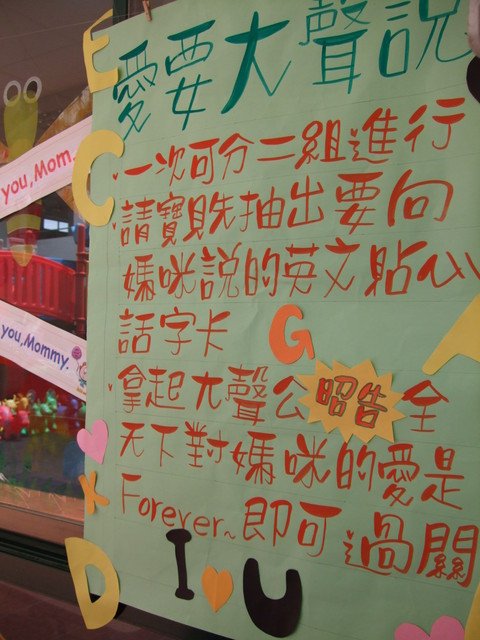 愛要大聲說
一次可分二組進行
請寶貝先抽出要向
媽咪說的英文貼心
話字卡
拿起大聲公昭告全
天下對媽咪的愛是
Forever~即可過關
E
C
G
D
I U
you, Mom.
you, Mommy.